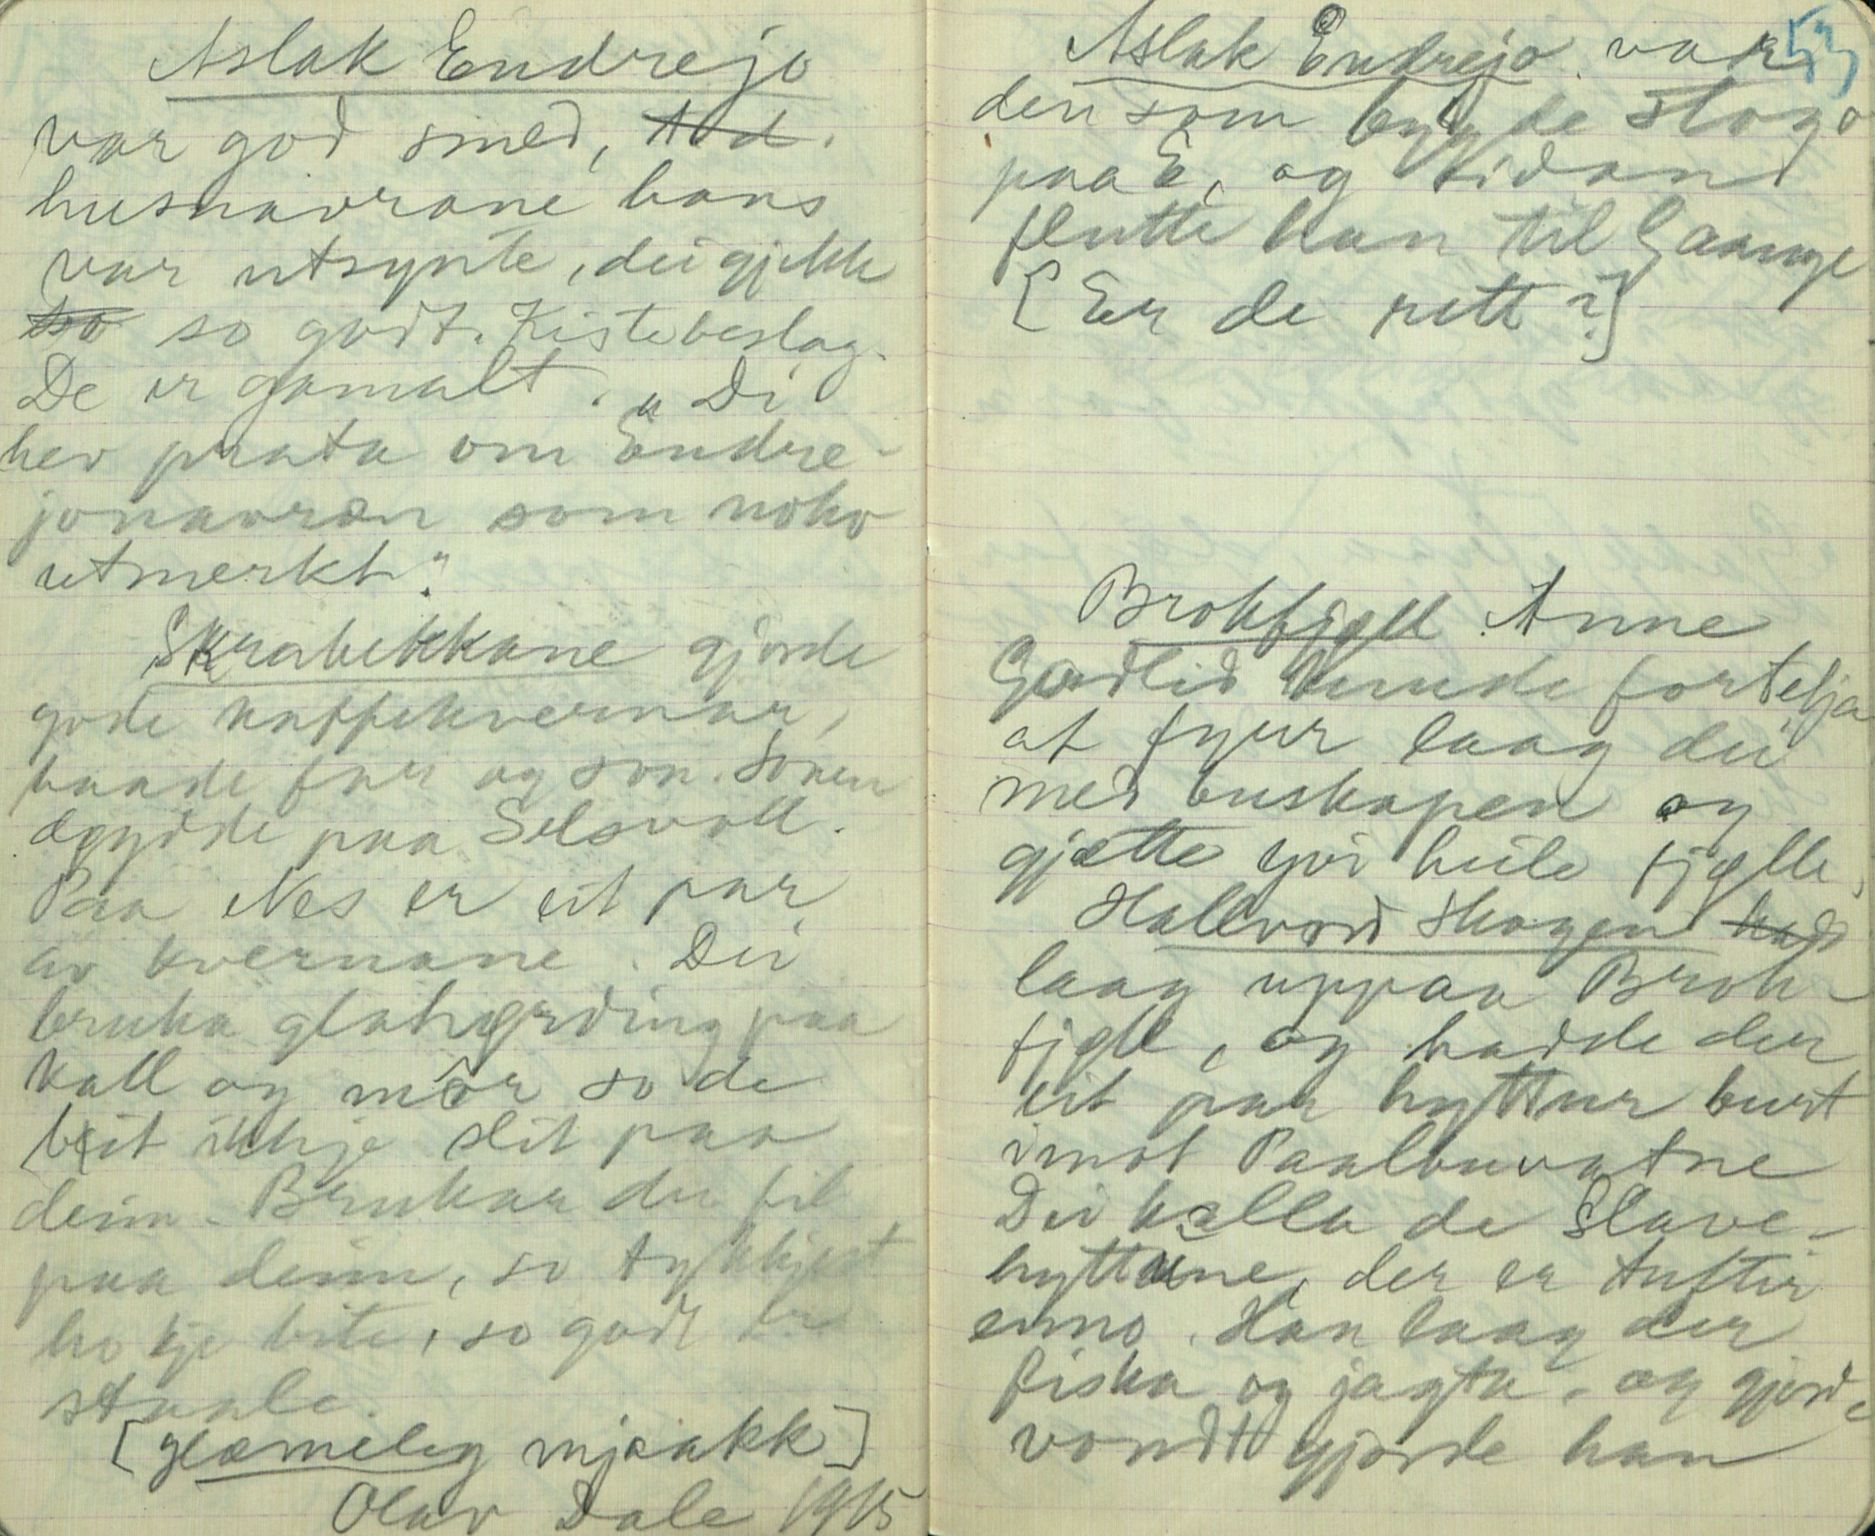 Aslak Endrejo
var god smed,
husnavrane hans
var utsynte, dei gjekk
so godt. Kistebeslag.
De er gamalt. „Di
hev prata om Endre-
jonavræn som noko
utmerkt."
Skrabekkane gjorde
gode kaffekvernar,
baade far og son. Sonen
døydde paa Selsvoll.
Paa Nes er eit par
av kvernane. Dei
bruka glasherding paa
kall og mor so de
beit ikkje slit paa
deim. Brukar du fil
paa deim, so tykkjest
ho kje bite, so godt er
staale.
[glæmeleg mjaakk]
Olav Dale 1915
53
Aslak Endrejo var
den som bygde stogo
paa E, og sidan
flutte han til Gaarje
[Er de rett?]
Brokfjøll Anne
Gardlid kunde fortelja
at fyrr laag dei
med buskapen og
gjætte yvi heile fjølle.
Hallvord Skogen
laag uppaa Brok-
fjøll, og hadde der
eit par hyttur burt
imot Paalbuvatne
Dei kalla de Slave-
hyttune, der er tuftir
enno. Han laag der
fiska og jagta. og gjord
vondt gjorde han